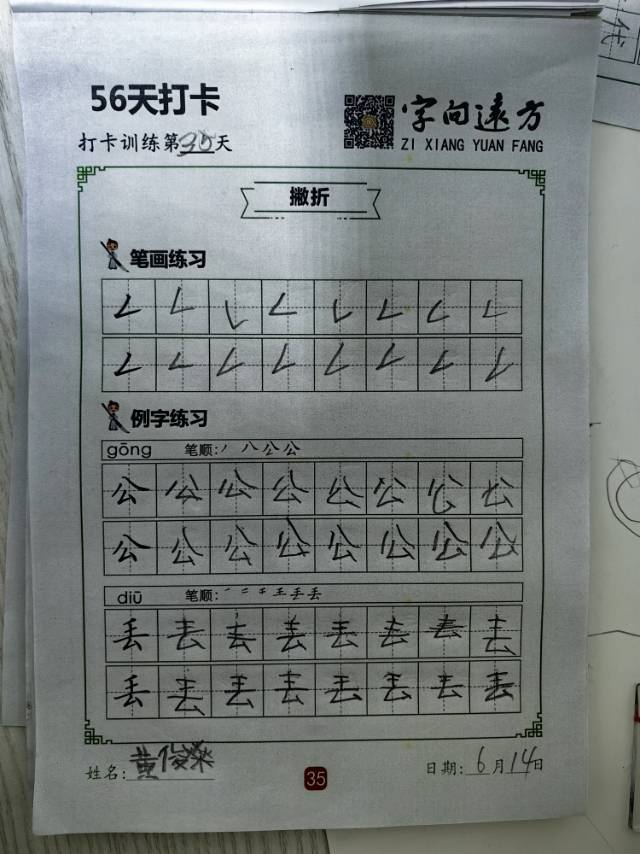 56天打卡
字向远方
打卡训练第35天
ZI XIANG YUAN FANG
撇折
笔画练习
例字练习
gōng 笔顺:丿 八 公 公
公 公 公 公 公 公 公 公
公 公 公 公 公 公 公 公
diū 笔顺:一 二 千 王 丢 丢
丢 丢 丢 丢 丢 丢 丢 丢
丢 丢 丢 丢 丢 丢 丢 丢
姓名:黄俊燊
35
日期:6月14日